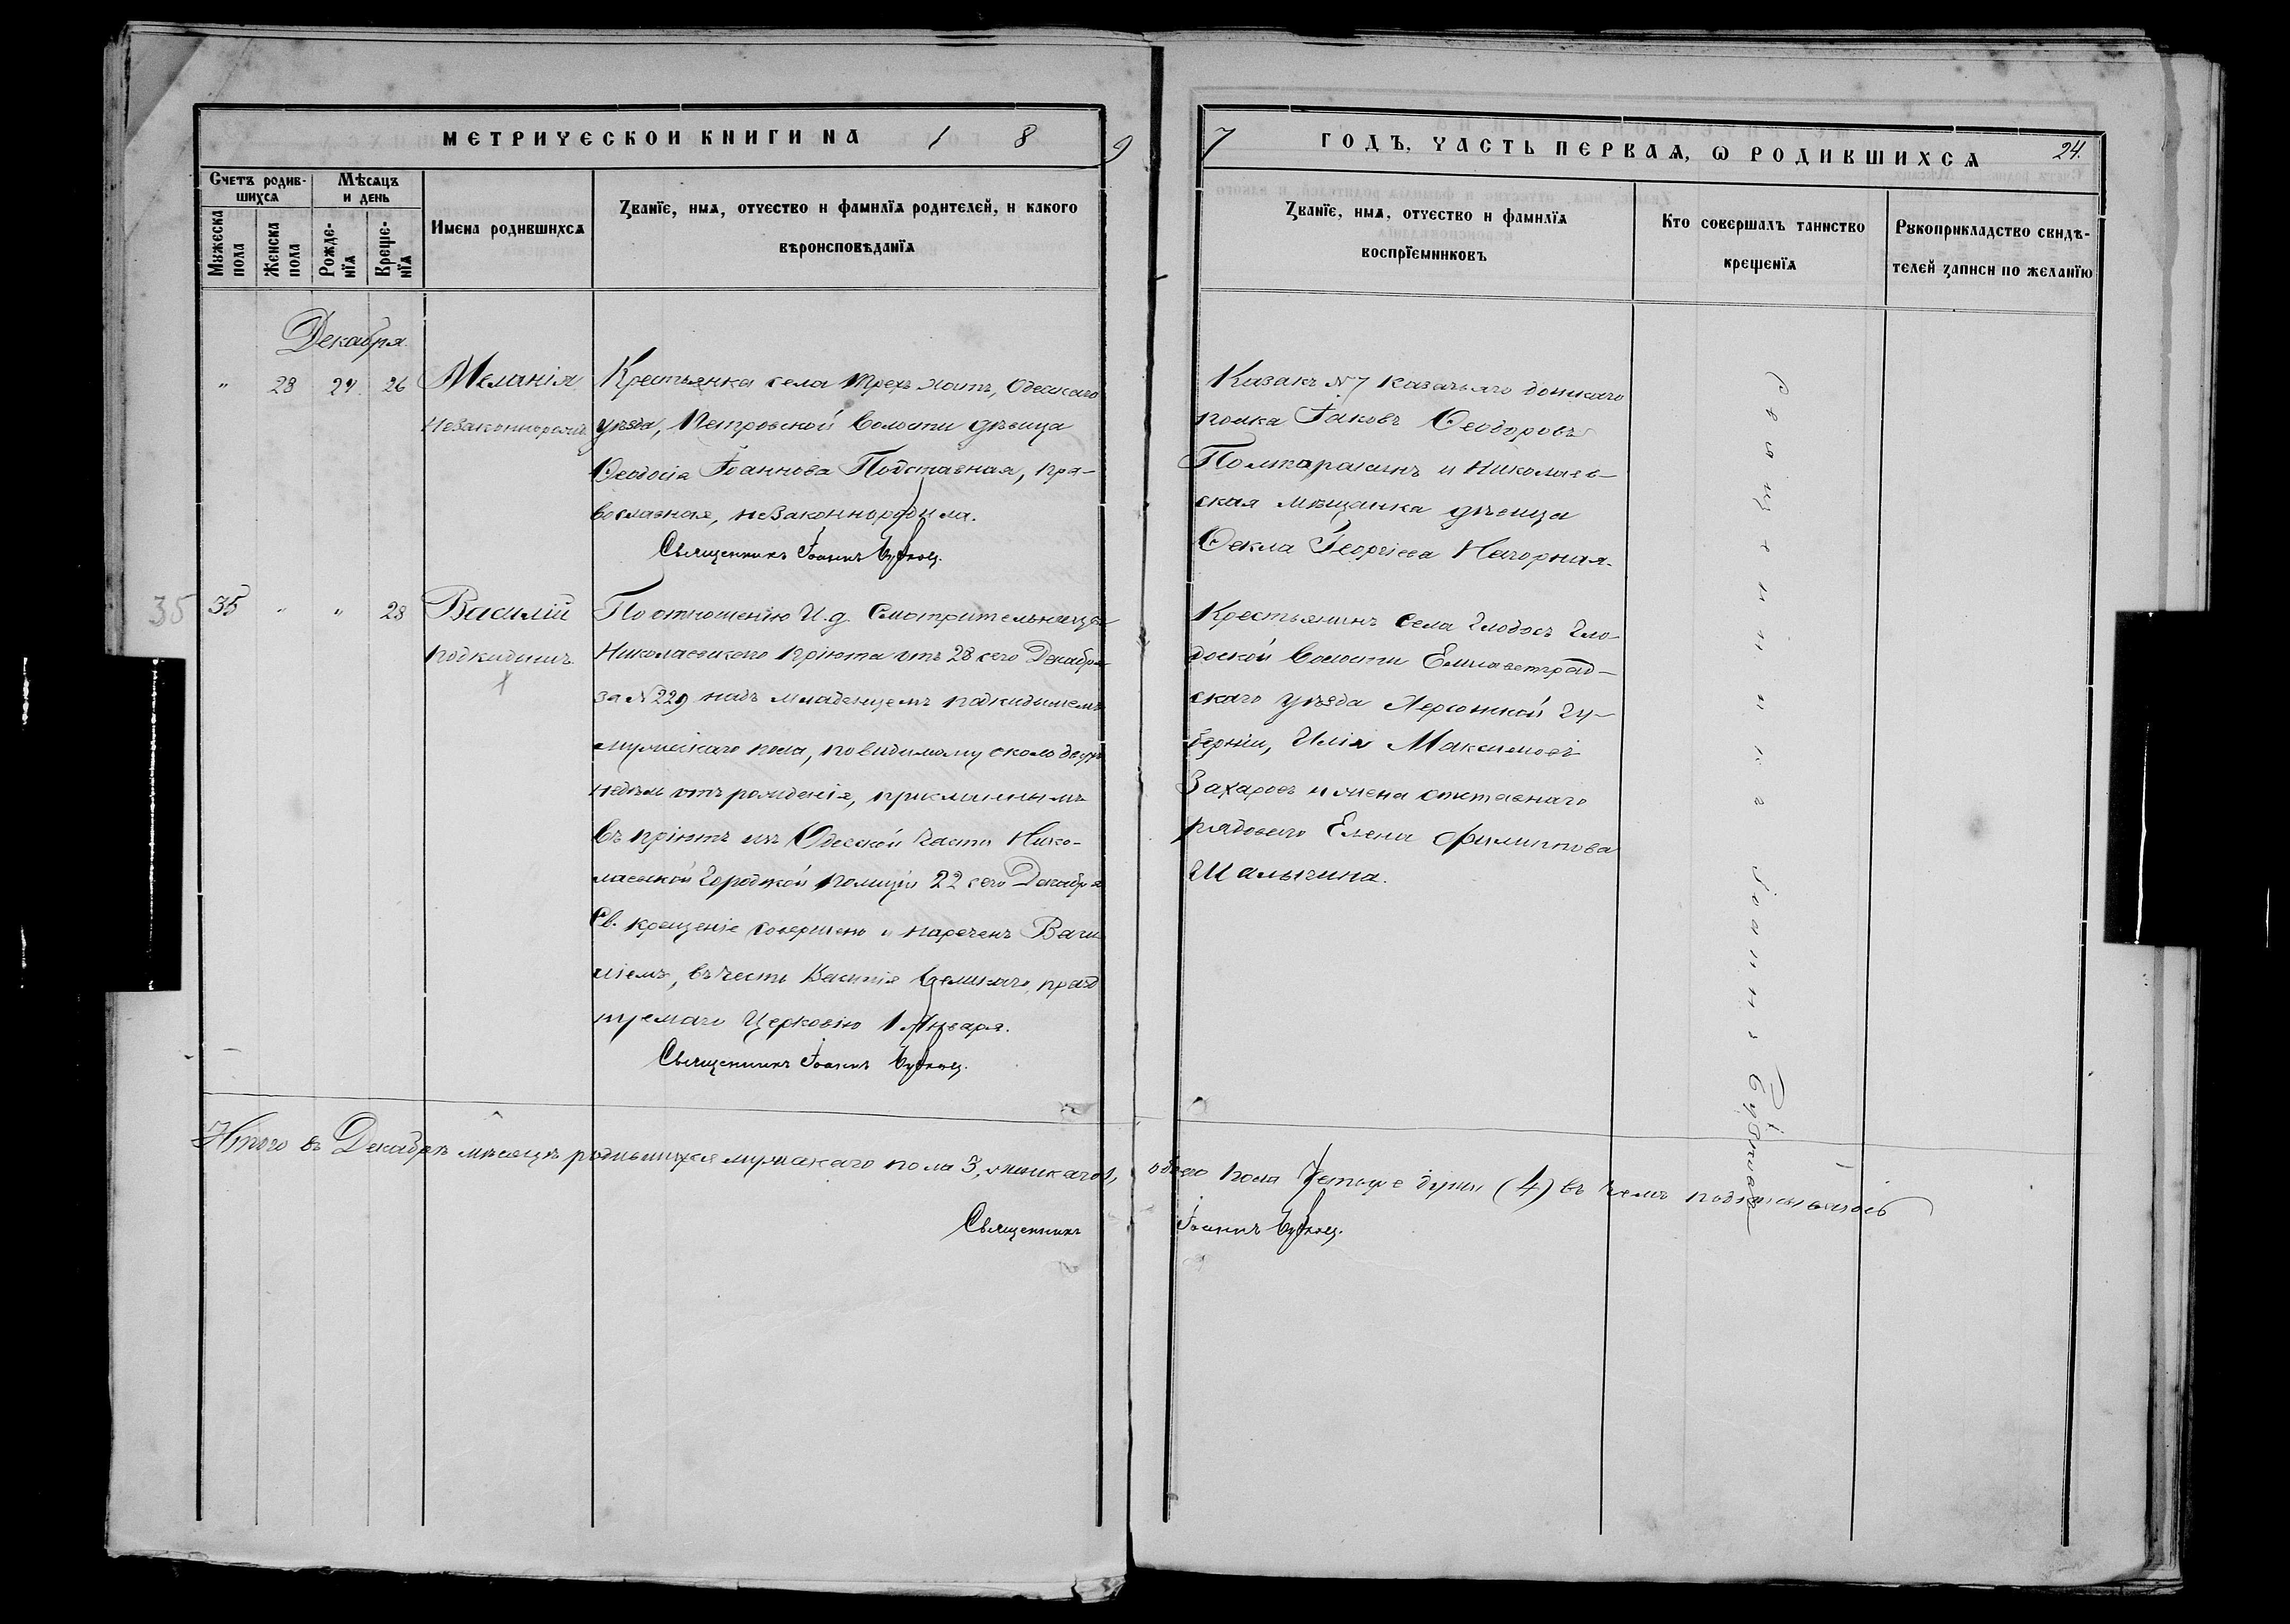 МЕТРИЧЕСКОЙ КНИГИ НА 1 8 9
7 ГОДЪ, ЧАСТЬ ПЕРВАЯ, Ѡ РОДИВШИХСЯ 24.
Счетъ родив-
шихся
Мужеска
пола
Женска
пола
Мѣсяцъ
и день
Рожде-
нїя
Креще-
нїя
Имена родившихся
Званїе, имя, отчество и фамилїя родителей, и какого
вѣроисповѣданїя
Званїе, имя, отчество и фамилїя
воспрїемниковъ
Кто совершалъ таинство
крещенїя
Рукоприкладство свидѣ-
телей записи по желанїю
Декабря
" 28 24 26
Меланія
незаконнорожд.
Крестьянка села Трехъ хатъ, Одесскаго
уѣзда, Петровской Волости дѣвица
Ѳеодосія Іоаннова Подставная, пра-
вославная, незаконнородила.
Священникъ Іоаннъ
Казакъ № 7 казачьяго донскаго
полка Іаковъ Ѳеодоровъ
и Николаев-
ская мѣщанка дѣвица
Ѳекла Георгіева Нагорная.
35 35 " " 28
Василій
подкидышъ
По отношенію И. д. Смотрительницы
Николаевскаго пріюта отъ 28 сего Декабря
за № 229 надъ младенцемъ подкидышемъ
мужескаго пола, повидимому около двухъ
недѣль отъ рожденія, присланнымъ
въ пріютъ изъ Одесской части Нико-
лаевской Городской Полиціи 22 сего Декабря
Св. крещеніе совершено и нареченъ Васи-
ліемъ, въ честь Василія Великаго, празд
нуемаго Церковію 1 Января.
Священникъ Іоаннъ
Крестьянинъ села Глодосъ Гло-
доской Волости Елисаветград-
скаго уѣзда Херсонской Гу-
берніи, Илія Максимовъ
Захаровъ и жена отставнаго
рядоваго Елена Филиппова
Шалыгина.
Священникъ Іоаннъ
Итого въ Декабрѣ мѣсяцѣ родившихся мужскаго пола 3, женскаго 1, обоего пола Четыре души (4) въ чемъ подписываюсь
Священникъ Іоаннъ